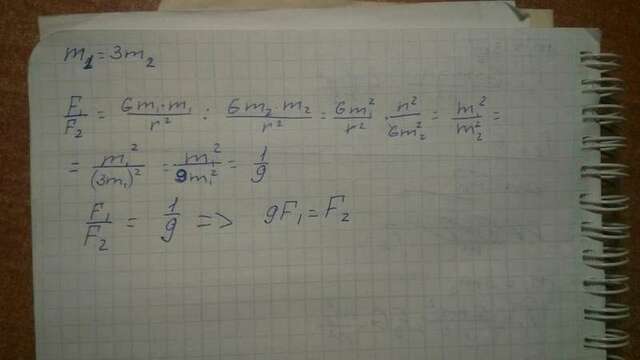 m₁ = 3m₂
F₁/F₂ = 6m₁·m₁/r² : 6m₂·m₂/r² = 6m₁²/r² · r²/6m₂² = m₁²/m₂² =
= m₁²/(3m₁)² = m₁²/9m₁² = 1/9
F₁/F₂ = 1/9 => 9F₁ = F₂